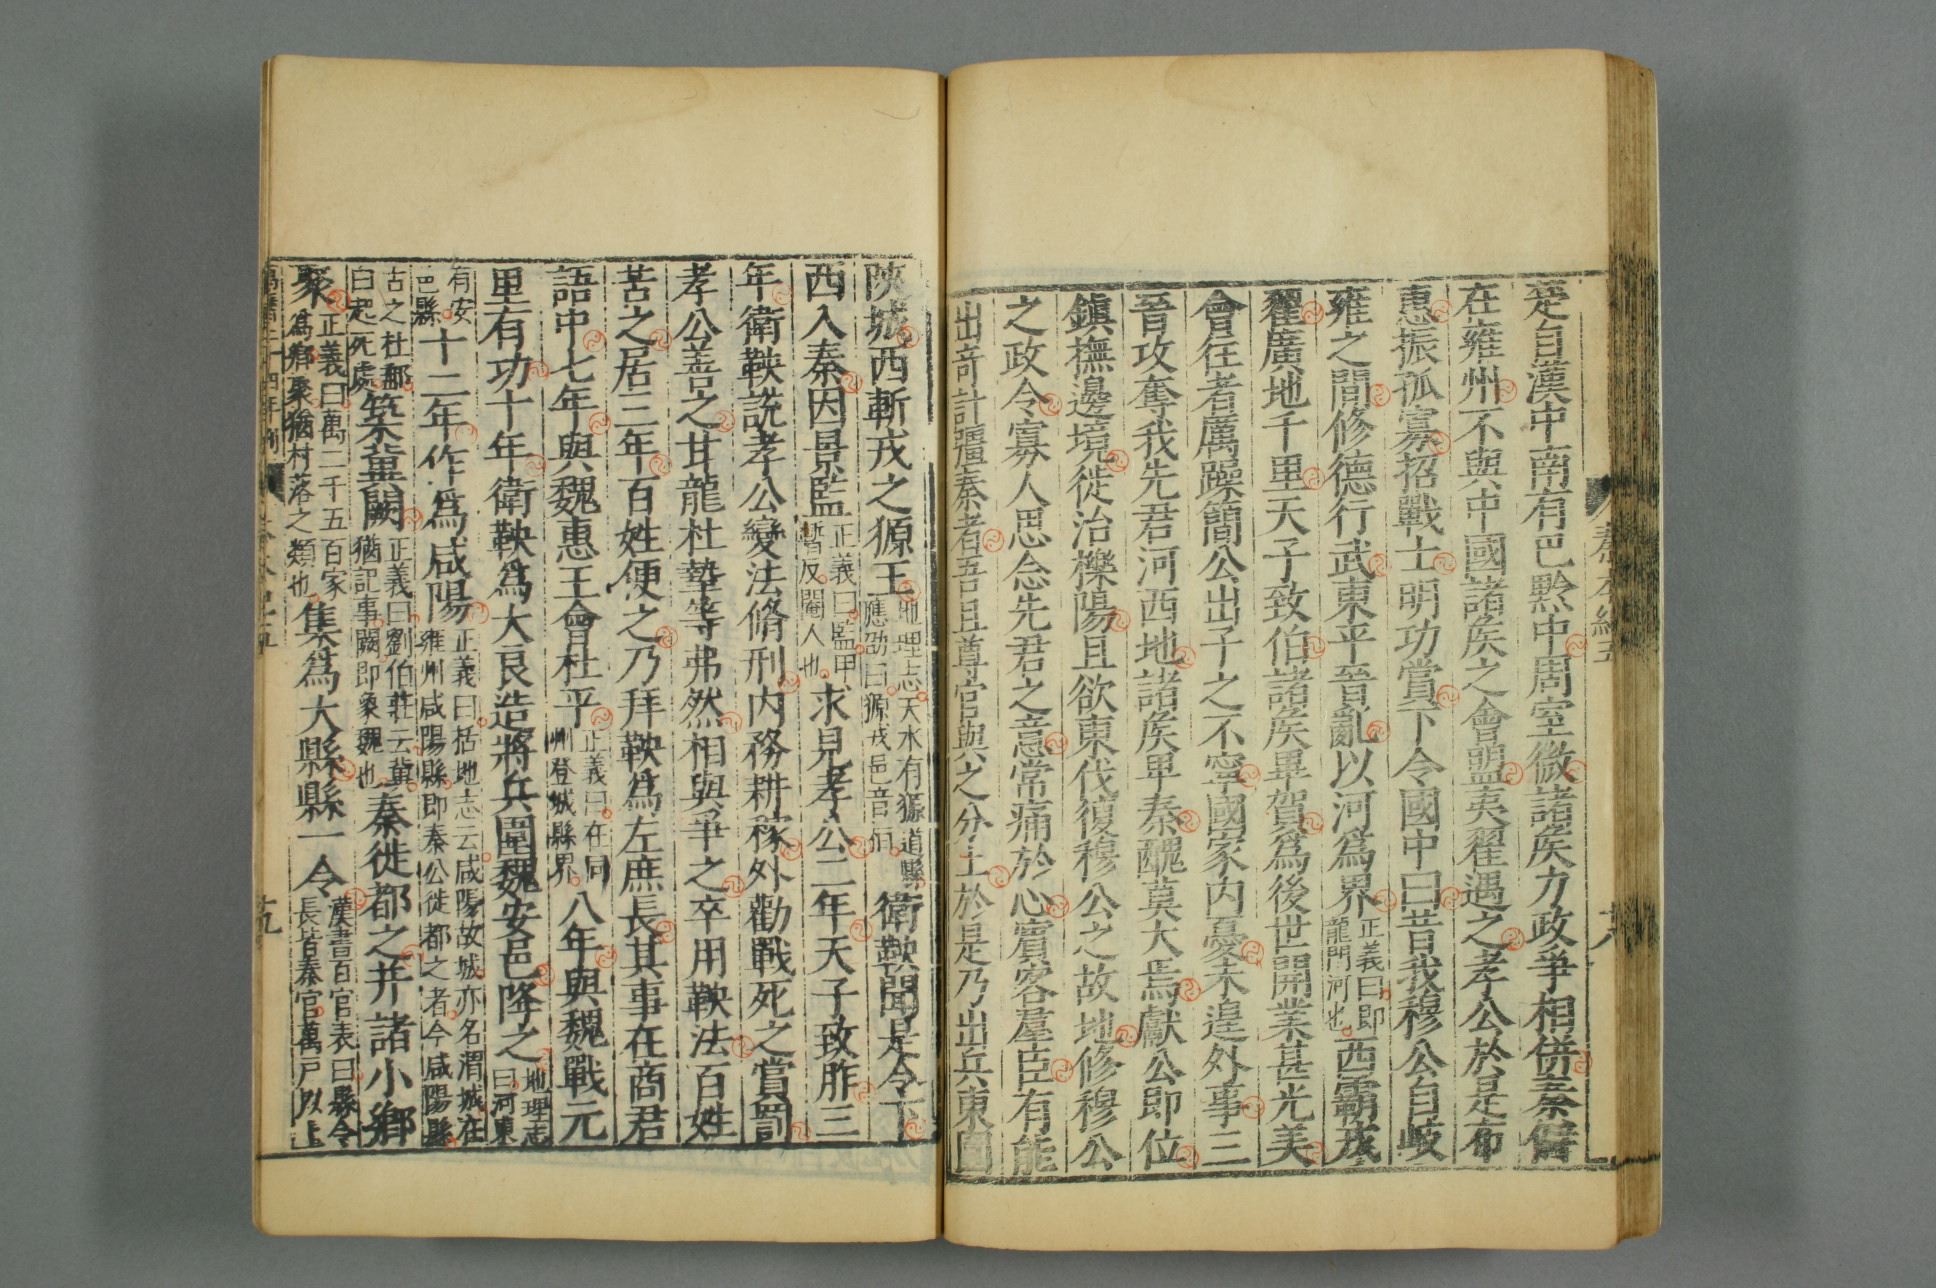 是自漢中南有巴黔中周室微諸矦力政爭相併秦僻
在雍州不與中國諸矦之會盟夷翟遇之孝公於是布
惠振孤寡招戰士明功賞下令國中曰昔我穆公自岐
雍之間修德行武東平晉亂以河爲界正義曰即龍門河也西霸戎
翟廣地千里天子致伯諸矦畢賀爲後世開業甚光美
會往者厲躁簡公出子之不寧國家內憂未遑外事三
晉攻奪我先君河西地諸矦畢秦醜莫大焉獻公即位
鎭撫邊境徙治櫟陽且欲東伐復穆公之故地修穆公
之政令寡人思念先君之意常痛於心賓客羣臣有能
出奇計彊秦者吾且尊官與之分土於是乃出兵東圍
陝城西斬戎之獂王地理志天水有獂道縣應劭曰獂戎邑音桓衛鞅聞是令下
西入秦因景監正義曰監甲暫反閹人也求見孝公二年天子致胙三
年衛鞅説孝公變法脩刑内務耕稼外勸戰死之賞罰
孝公善之甘龍杜摯等弗然相與爭之卒用鞅法百姓
苦之居三年百姓便之乃拜鞅爲左庶長其事在商君
語中七年與魏惠王會杜平正義曰在同州登城縣界八年與魏戰元
里有功十年衛鞅爲大良造將兵圍魏安邑降之地理志曰河東
有安邑縣十二年作爲咸陽正義曰括地志云咸陽故城亦名渭城在雍州咸陽縣即秦公徙都之者今咸陽縣
古之杜郵白起死處築冀闕正義曰劉伯莊云冀猶記事闕即象魏也秦徙都之并諸小鄉
聚正義曰萬二千五百家爲鄉聚猶村落之類也集爲大縣縣一令漢書百官表曰縣令長皆秦官萬戶以上